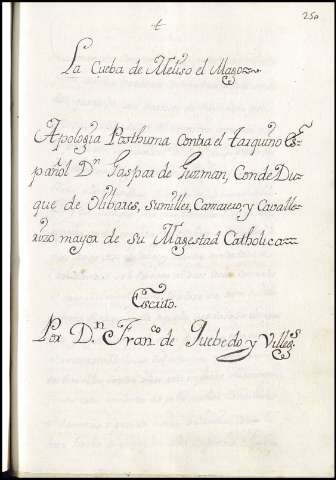 250
La Cueba de Meliso el Mago
Apologia Posthuma contra el tarquino Es-
pañol Dn Gaspar de Guzman, Conde Du-
que de Olibares, sumiller, Camarero, y Cavalle-
rizo mayor de su Magestad Catholica
Escrito.
Por D.n Fran.co de Quebedo y Villegs